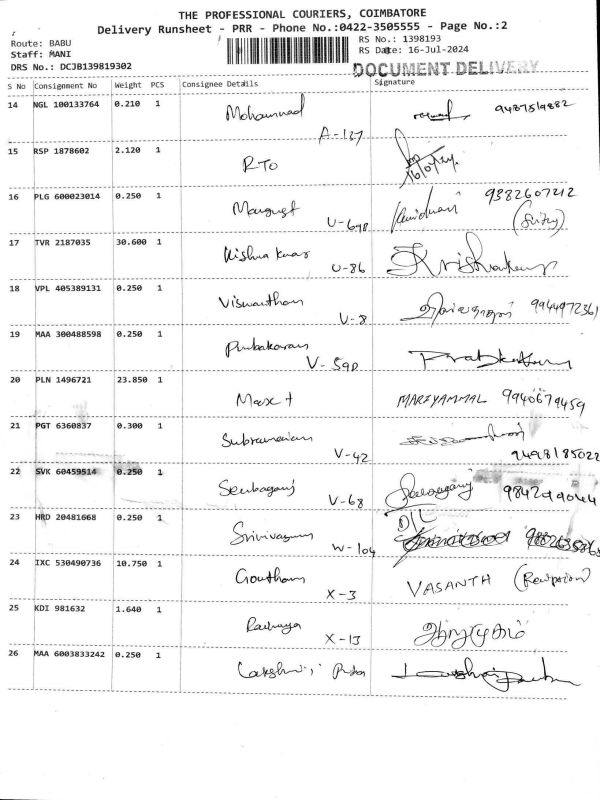 THE PROFESSIONAL COURIERS, COIMBATORE
Delivery Runsheet - PRR - Phone No.:0422-3505555 - Page No.:2
Route: BABU
Staff: MANI
DRS No.: DCJB139819302
RS No.: 1398193
RS Date: 16-Jul-2024
DOCUMENT DELIVERY
S No Consignment No Weight PCS Consignee Details Signature
14 NGL 100133764 0.210 1 Mohammad 9487519882
A-137
15 RSP 1878602 2.120 1 RTO
16 PLG 600023014 0.250 1 9382607212
17 TVR 2187035 30.600 1 Krishna Kumar
U-86
18 VPL 405389131 0.250 1 Viswanthan 9944972361
V-8
19 MAA 300488598 0.250 1 Prabakaran
V-59D
20 PLN 1496721 23.850 1 MARIYAMMAL 9940679459
21 PGT 6360837 0.300 1 Subramanian
V-42 9498185022
22 SVK 60459514 0.250 1 Senbagaraj
V-68 9842499044
23 HRD 20481668 0.250 1 Srinivasan D/L
W-104
24 IXC 530490736 10.750 1 Goutham VASANTH (Reception)
X-3
25 KDI 981632 1.640 1
X-13
26 MAA 6003833242 0.250 1 Lakshmi